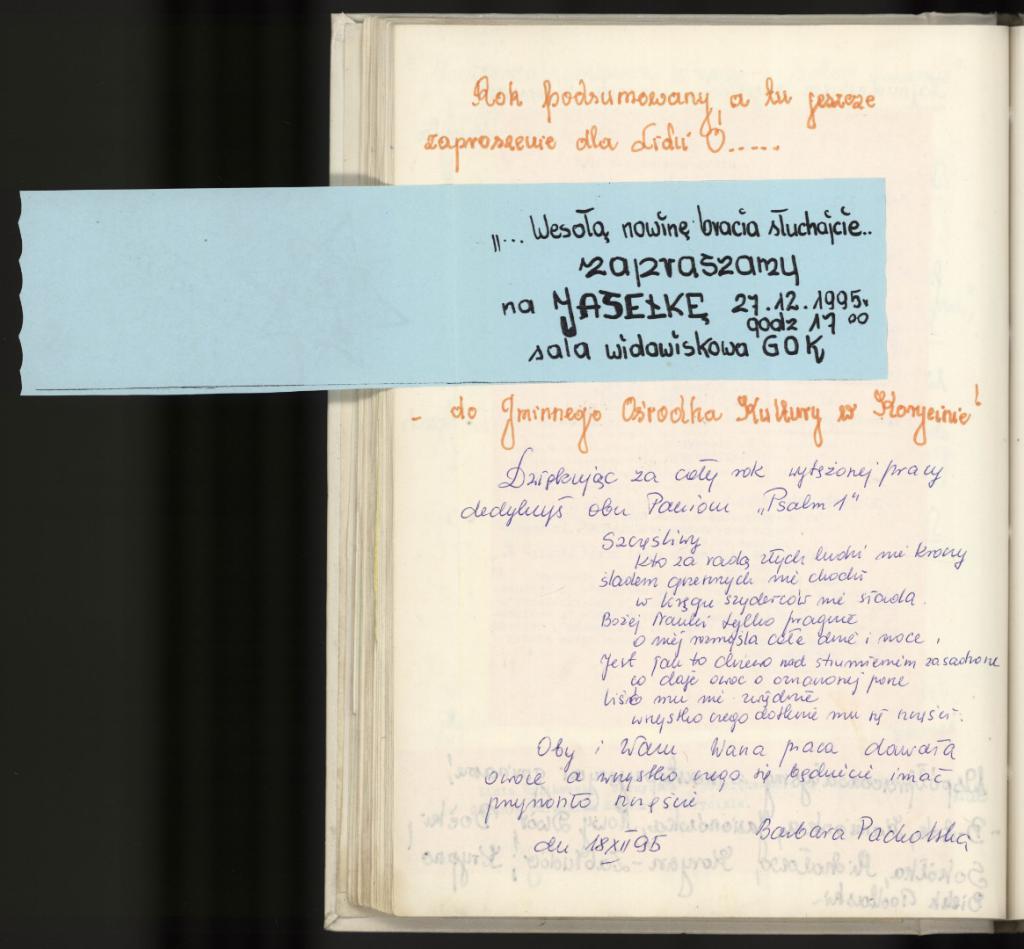 Rok podsumowany, a tu jeszcze
zaproszenie dla Lidii Ó.....
"... Wesołą nowinę bracia słuchajcie..
zapraszamy
na JASEŁKĘ 27.12.1995r
godz 17 00
sala widowiskowa GOK
- do Gminnego Ośrodka Kultury w Korycinie!
Dziękując za cały rok wytężonej pracy
dedykuję obu Paniom „Psalm 1"
Szczęśliwy
kto za radą złych ludzi nie kroczy
śladem grzesznych nie chodzi
w kręgu szyderców nie siada.
Bożej Nauki tylko pragnie
o niej rozmyśla całe dnie i noce,
Jest jak to drzewo nad strumieniem zasadzone
co daje owoc o oznaczonej porze
liście mu nie zwiędnie
wszystko czego dotknie mu się szczęści.
Oby i Wam, Wasza praca dawała
owoce a wszystko czego się będziecie imać
przynosiło szczęście
Barbara Pacholska
dn 18 XII 95